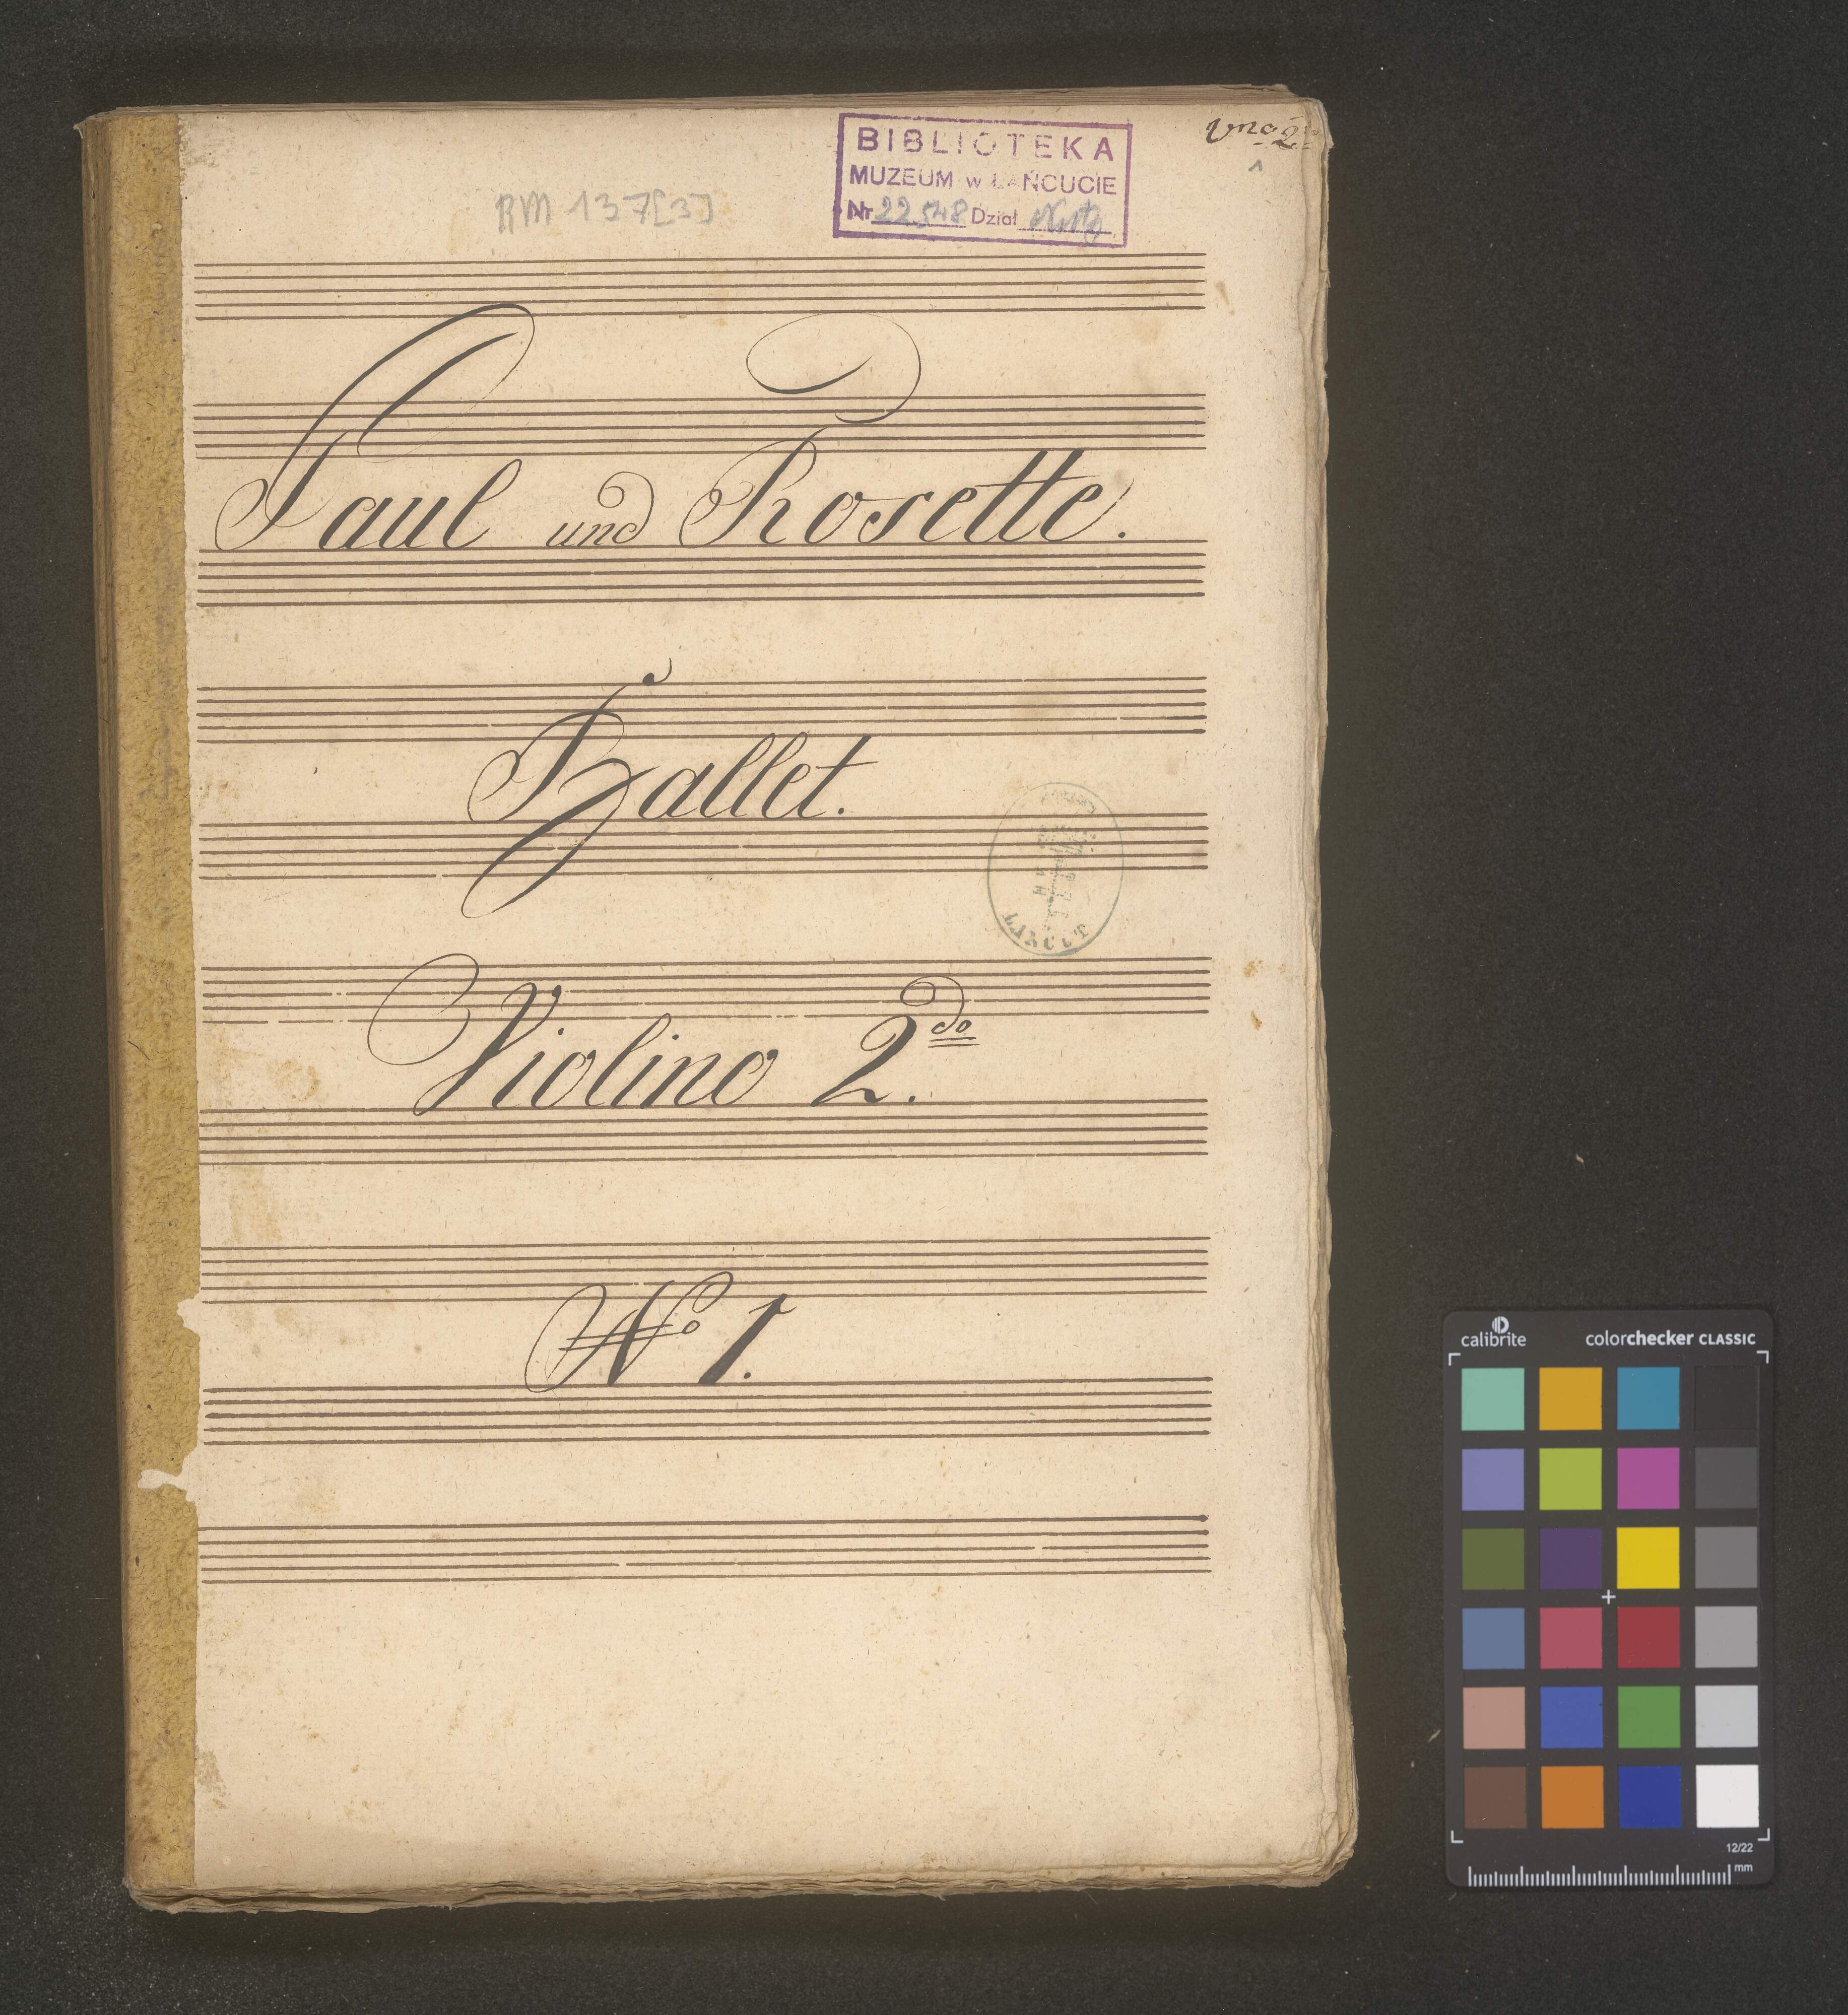 Vno 2do
BIBLIOTEKA
MUZEUM w ŁAŃCUCIE
Nr 22548 Dział
RM 137[3]
Paul und Rosette.
Ballet.
ŁAŃCUT
Violino 2do.
No 1.
calibrite colorchecker CLASSIC
12/22
mm